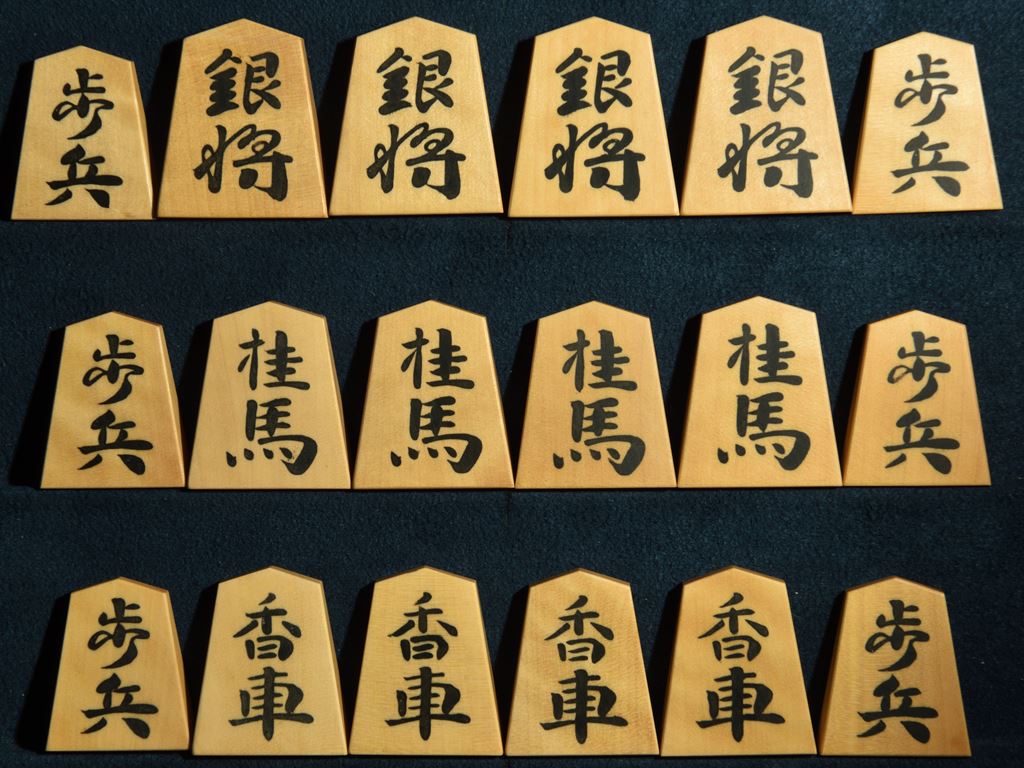 歩兵
銀将
銀将
銀将
銀将
歩兵
歩兵
桂馬
桂馬
桂馬
桂馬
歩兵
歩兵
香車
香車
香車
香車
歩兵